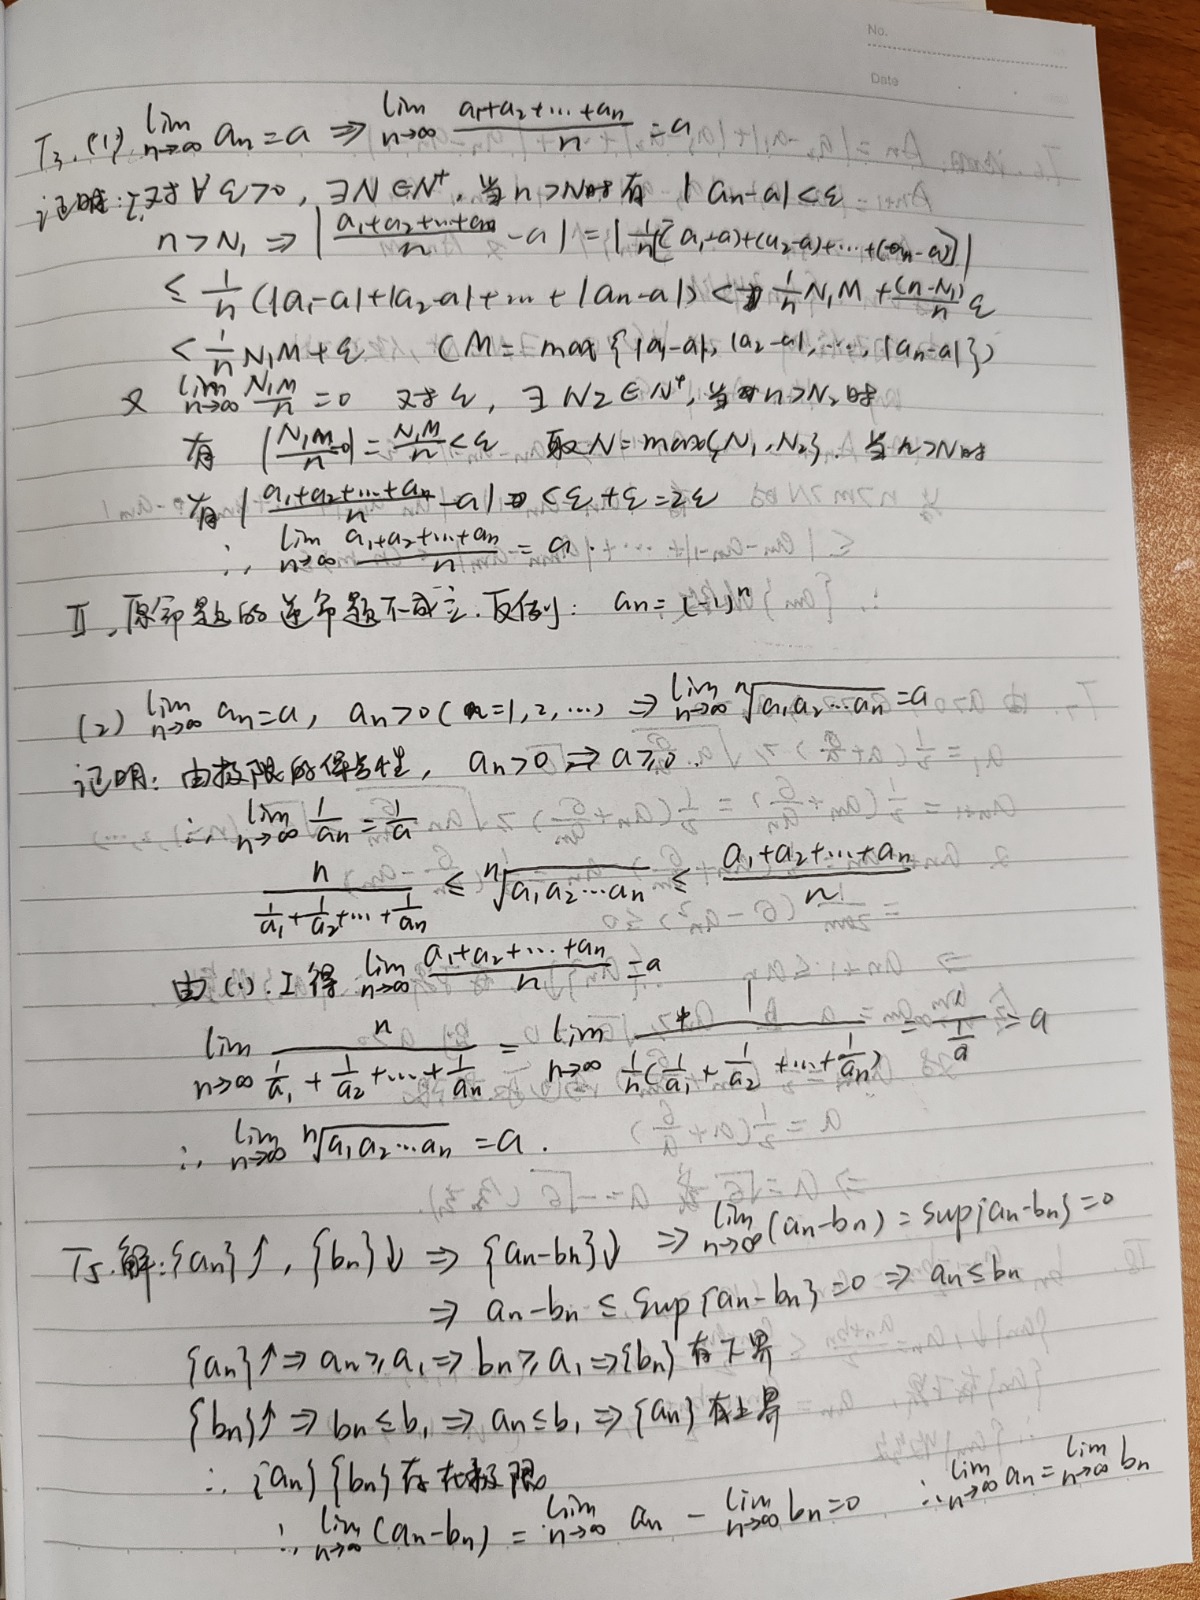 No.
Date
T3.(1) lim_{n→∞} an=a ⇒ lim_{n→∞} (a1+a2+…+an)/n =a
证明: I.对∀ε>0, ∃N∈N⁺, 当n>N时有 |an-a|<ε
n>N1 ⇒ |(a1+a2+…+an)/n -a| = |1/n[(a1-a)+(a2-a)+…+(an-a)]|
≤ 1/n (|a1-a|+|a2-a|+…+|an-a|) < 1/n N1M + (n-N1)/n ε
< 1/n N1M+ε (M=max{|a1-a|, |a2-a|, …, |an-a|})
又 lim_{n→∞} N1M/n =0 对ε, ∃N2∈N⁺, 当n>N2时
有 |N1M/n -0| = N1M/n <ε 取N=max{N1,N2}. 当n>N时
有 |(a1+a2+…+an)/n -a| <ε+ε=2ε
∴ lim_{n→∞} (a1+a2+…+an)/n = a.
II.原命题的逆命题不成立.反例: an=(-1)ⁿ
(2) lim_{n→∞} an=a, an>0 (n=1,2,…) ⇒ lim_{n→∞} ⁿ√(a1a2…an) =a
证明: 由极限的保号性, an>0 ⇒ a≥0.
∴ lim_{n→∞} 1/an = 1/a
n/(1/a1+1/a2+…+1/an) ≤ ⁿ√(a1a2…an) ≤ (a1+a2+…+an)/n
由(1).I得 lim_{n→∞} (a1+a2+…+an)/n =a
lim_{n→∞} n/(1/a1+1/a2+…+1/an) = lim_{n→∞} 1/(1/n(1/a1+1/a2+…+1/an)) = 1/(1/a) = a
∴ lim_{n→∞} ⁿ√(a1a2…an) =a.
T5.解:{an}↑, {bn}↓ ⇒ {an-bn}↓ ⇒ lim_{n→∞}(an-bn)=sup{an-bn}=0
⇒ an-bn ≤ sup{an-bn}=0 ⇒ an≤bn
{an}↑⇒ an≥a1⇒ bn≥a1⇒{bn}有下界
{bn}↑ ⇒ bn≤b1 ⇒ an≤b1 ⇒{an}有上界
∴ {an} {bn}存在极限
∴ lim_{n→∞}(an-bn) = lim_{n→∞} an - lim_{n→∞} bn=0 ∴ lim_{n→∞} an= lim_{n→∞} bn